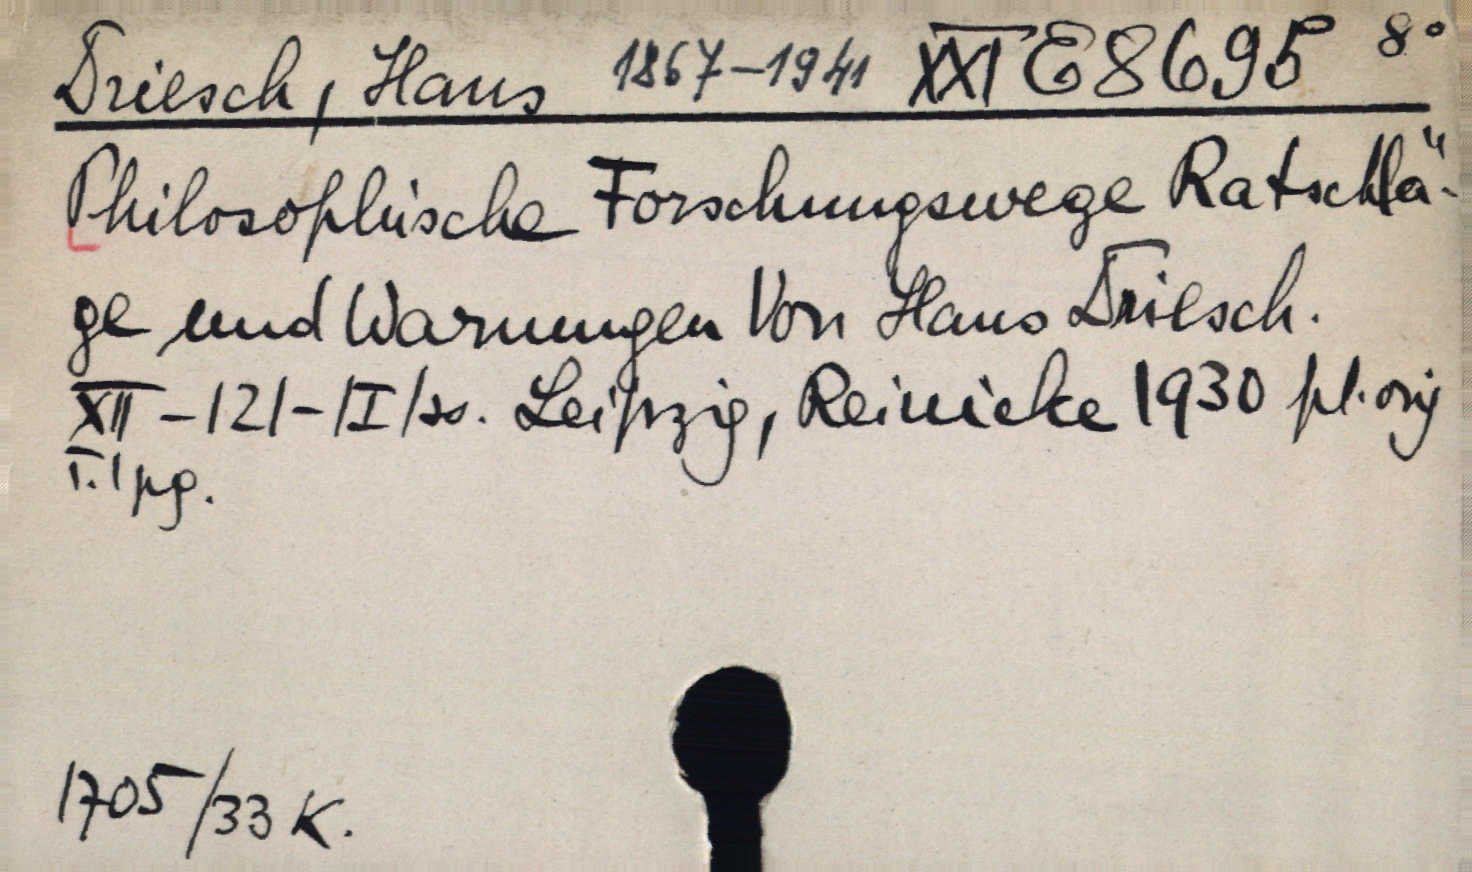 Driesch, Hans 1867-1941 XXI E 8695 8°
Philosophische Forschungswege Ratschlä-
ge und Warnungen Von Hans Driesch.
XII - 121 - /I/ Leipzig, Reinicke 1930 pl. orig
T. 1 pg.
1705/33 K.